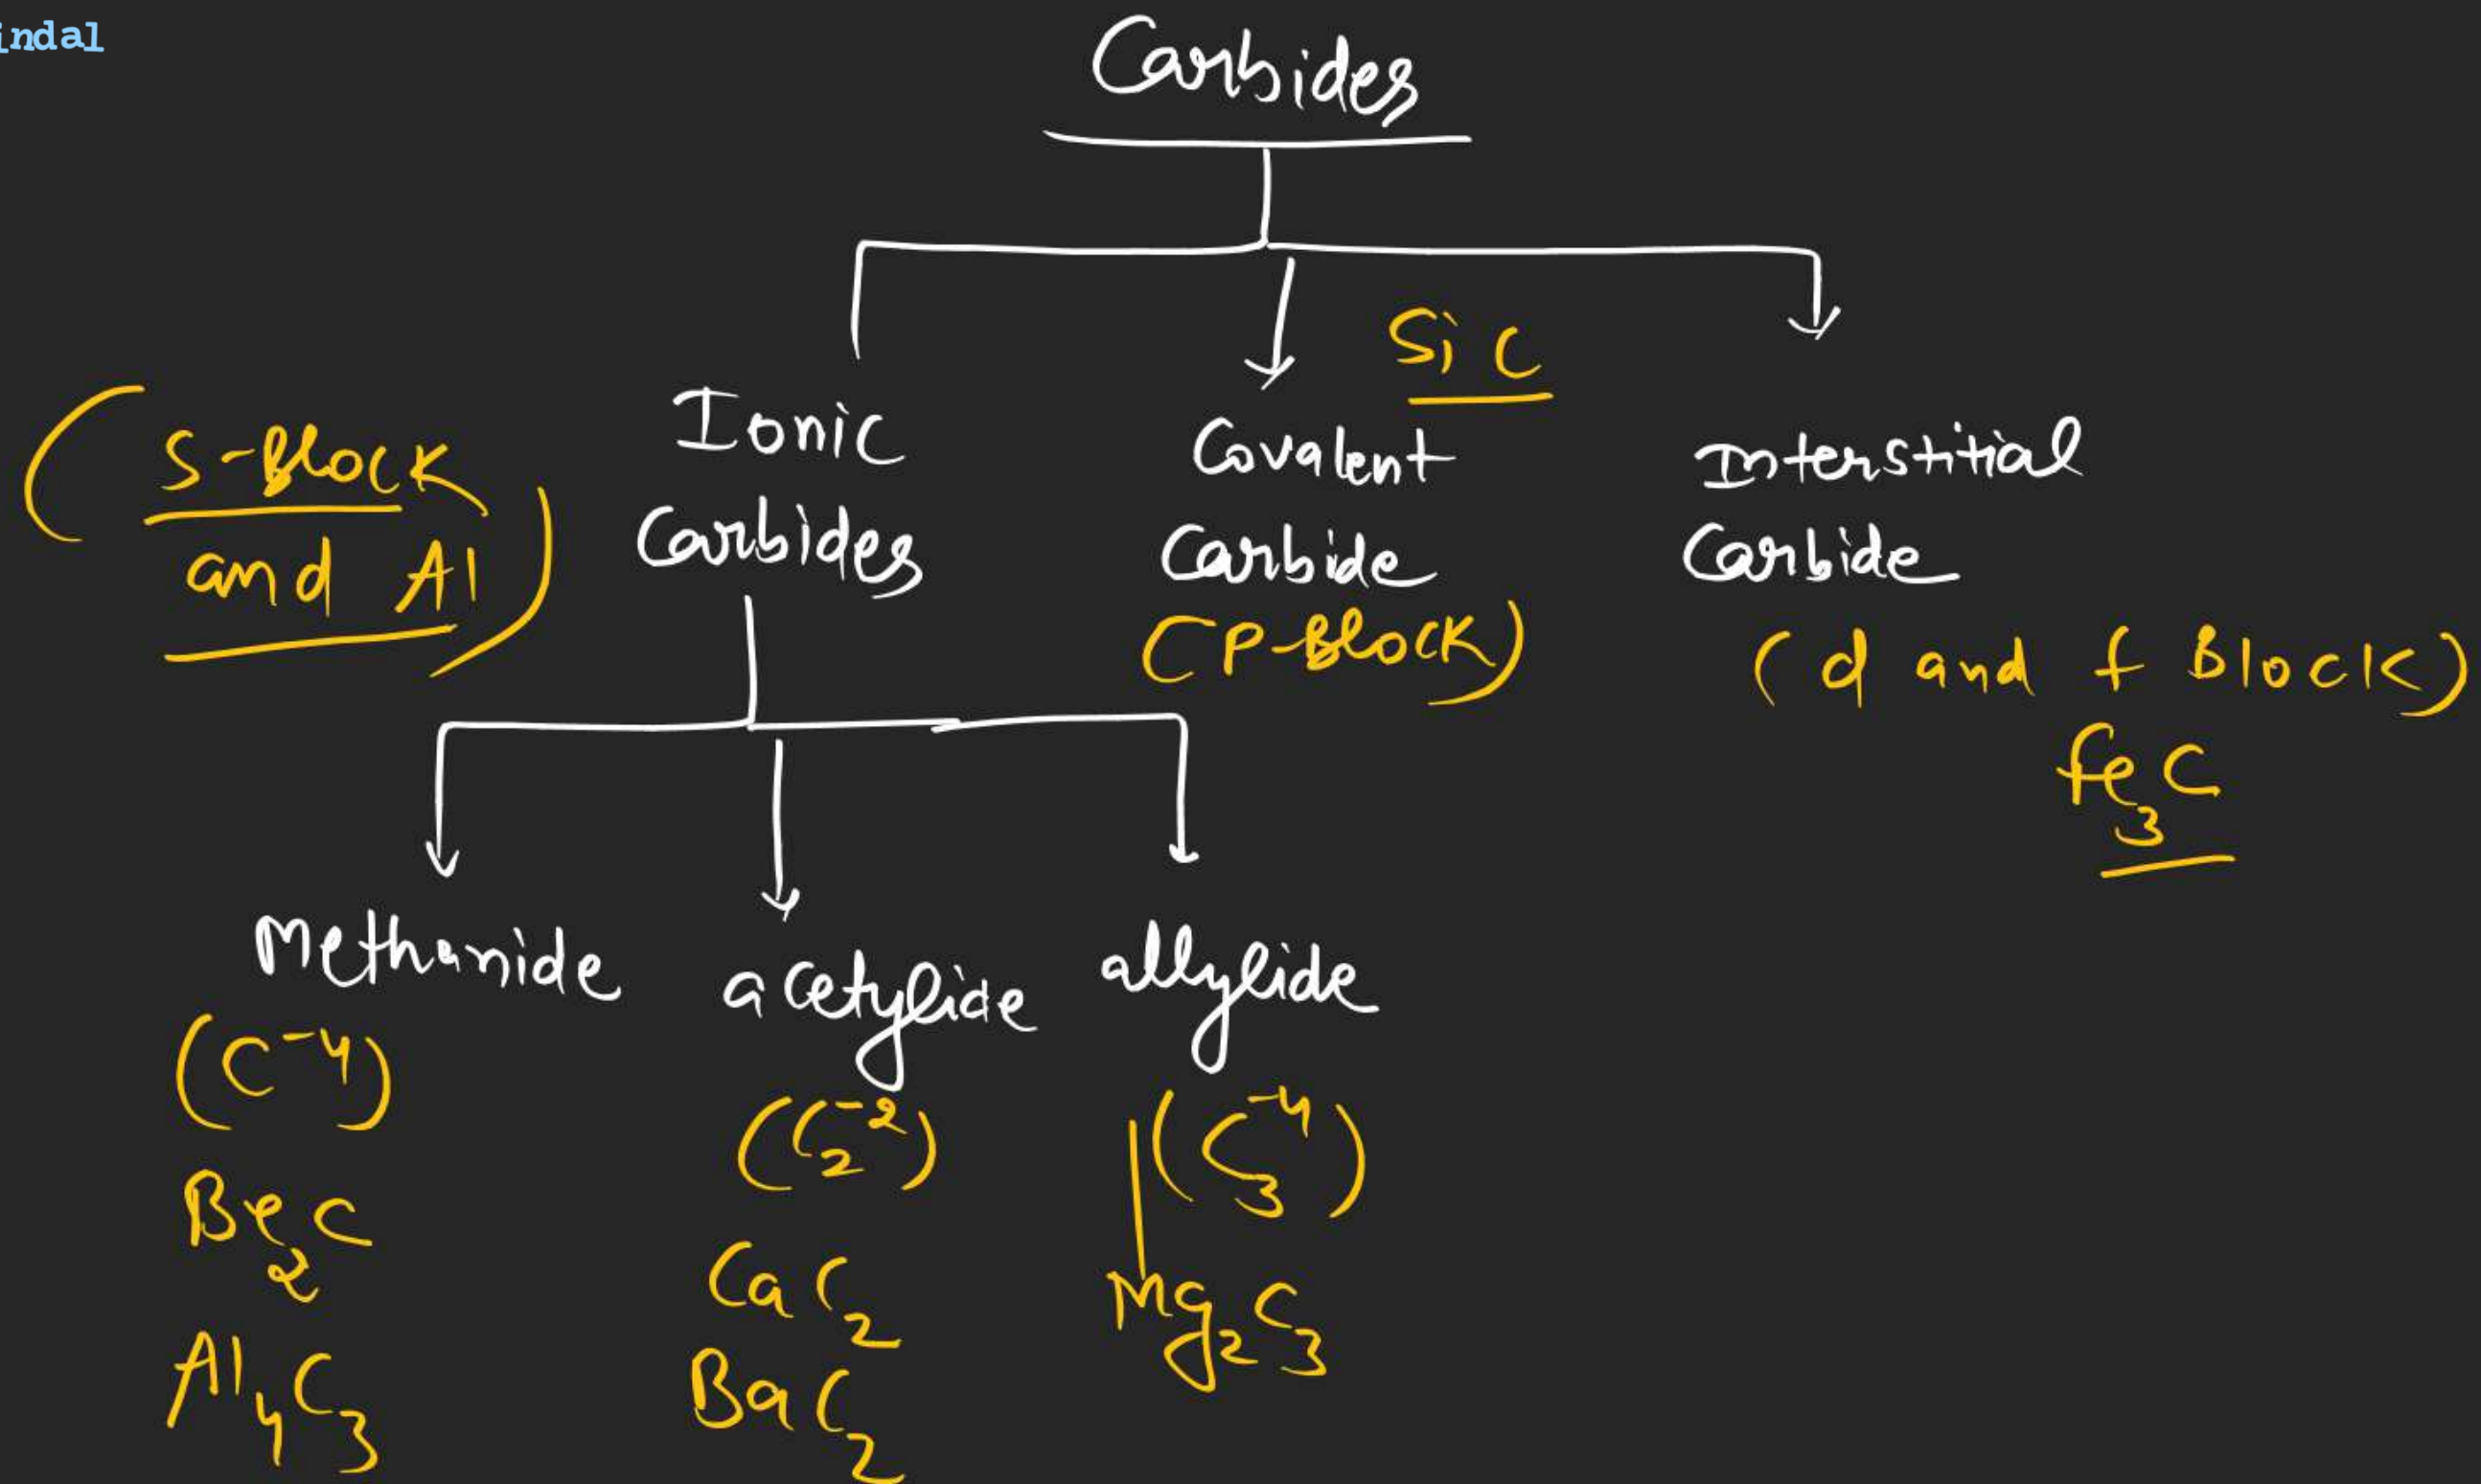 indal
Carbides
Si C
(S-Block
and Al)
Ionic
Carbides
Covalent
Carbide
(P-Block)
Interstitial
Carbide
(d and f Block)
Fe₃C
Methanide
(C⁻⁴)
Be₂C
Al₄C₃
acetylide
(C₂⁻²)
CaC₂
BaC₂
allylide
(C₃⁻⁴)
Mg₂C₃